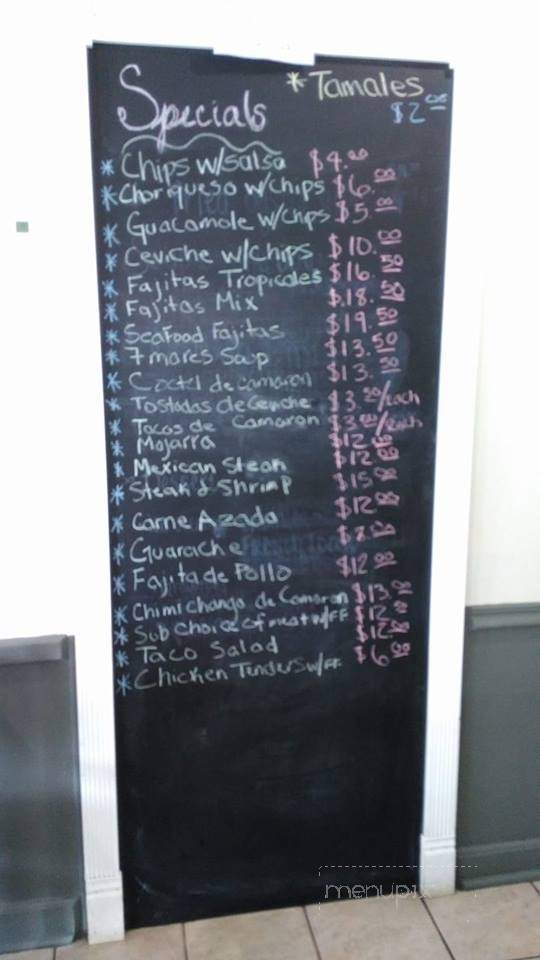 * Tamales
$2.00
Specials
* Chips w/salsa $4.00
* Choriqueso w/chips $6.00
* Guacamole w/chips $5.00
* Ceviche w/chips $10.00
* Fajitas Tropicales $16.50
* Fajitas Mix $18.50
* Seafood Fajitas $19.50
* 7 mares Soup $13.50
* Coctel de camaron $13.50
* Tostadas de Ceviche $3.50/each
* Tacos de Camaron $3.00/each
* Mojarra $12.00
* Mexican Steak $12.00
* Steak & Shrimp $15.00
* Carne Azada $12.00
* Guarache $8.00
* Fajita de Pollo $12.00
* Chimichanga de Camaron $13.00
* Sub choice of meat w/FF $12.00
* Taco Salad $12.00
* Chicken Tenders w/FF $6.00
menupix